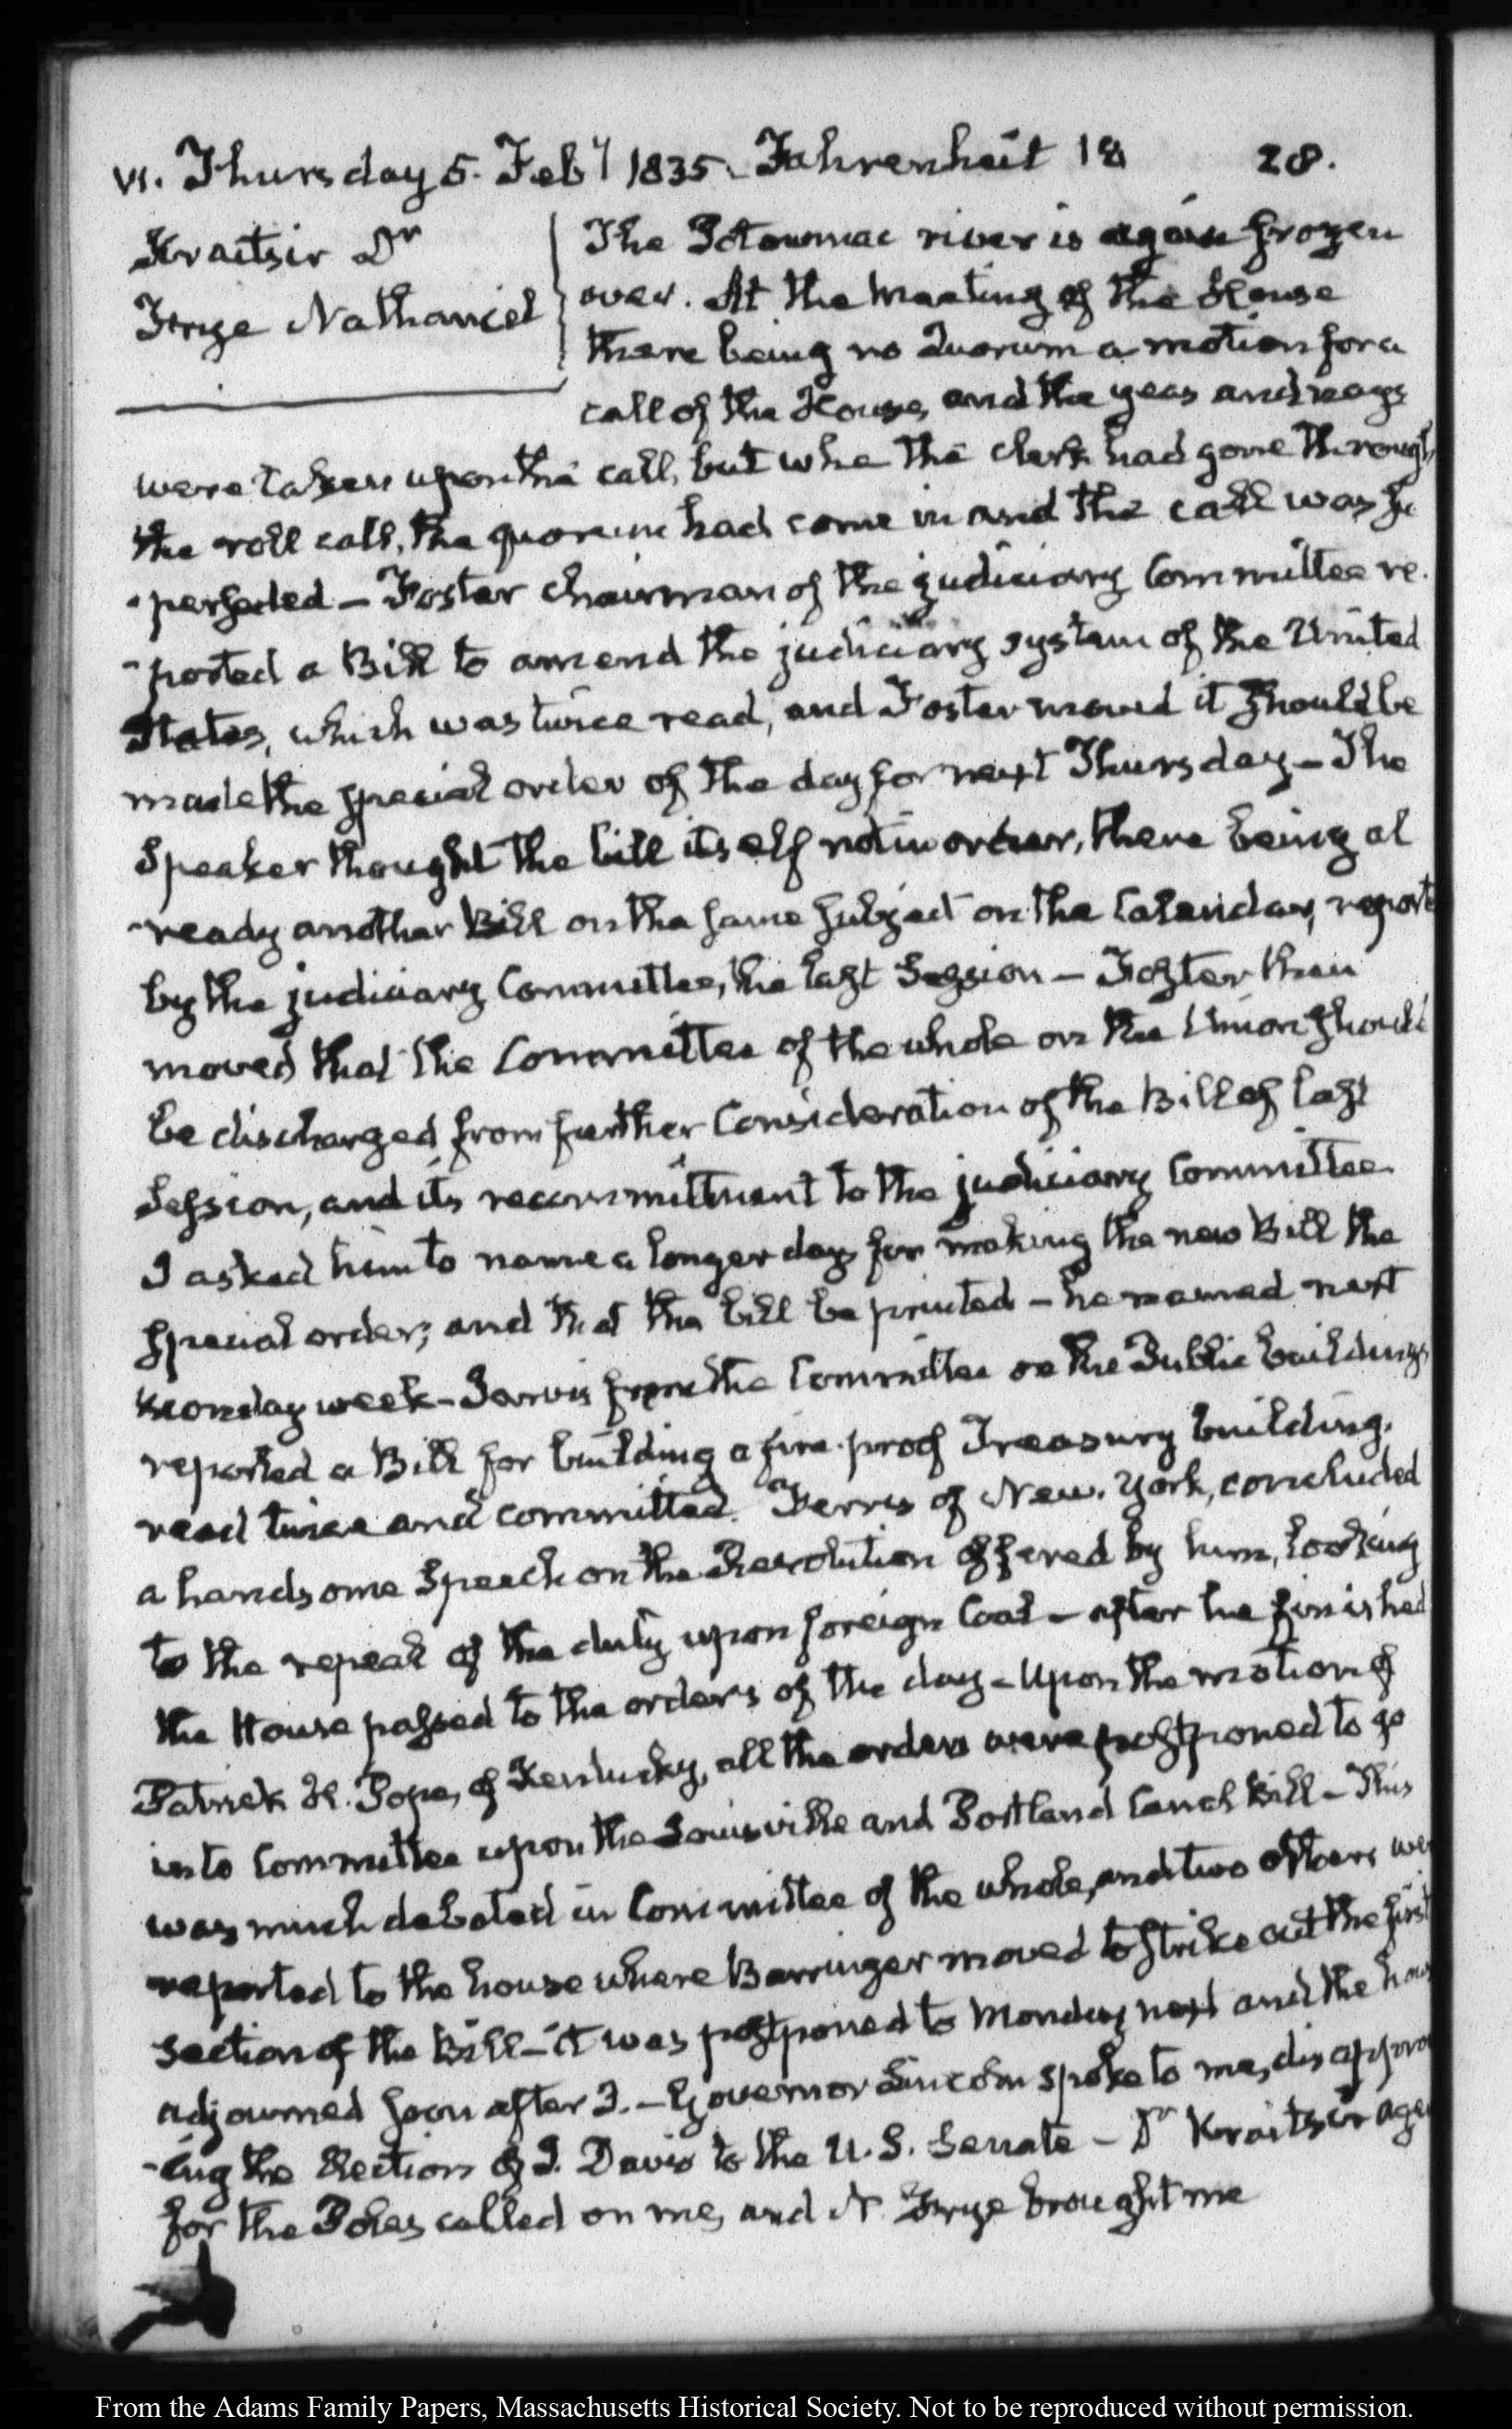 VI. Thursday 5. Feby 1835. Fahrenheit 18 28.
Kraitsir Dr
Frye Nathaniel
The Potowmac river is again frozen
over. At the meeting of the House
there being no Quorum a motion for a
call of the House, and the yeas and nays
were taken upon the call, but whe the clerk had gone through
the roll call, the quorum had come in and the call was su
-perseded — Foster chairman of the judiciary Committee re-
-ported a Bill to amend the judiciary system of the United
States, which was twice read, and Foster moved it should be
made the special order of the day for next Thursday — The
Speaker thought the bill itself not in order, there being al
-ready another Bill on the same subject on the Calendar, report
by the judiciary Committee, the last Session — Foster then
moved that the Committee of the whole on the Union should
be discharged from further Consideration of the Bill of last
Session, and its recommitment to the judiciary Committee
I asked him to name a longer day for making the new Bill the
special order; and that the bill be printed — he named next
Monday week — Jarvis from the Committee on the Public buildings
reported a Bill for building a fire-proof Treasury building.
read twice and committed. Ferris of New-York, concluded
a handsome Speech on the Resolution offered by him, looking
to the repeal of the duty upon foreign Coal — after he finished
the House passed to the orders of the day — Upon the motion of
Patrick H. Pope, of Kentucky, all the orders were postponed to go
into Committee upon the Louisville and Portland Canal Bill — This
was much debated in Committee of the whole, and two others we
reported to the house where Barringer moved to strike out the first
section of the Bill — it was postponed to Monday next and the hou
adjourned soon after 3. — Governor Lincoln spoke to me, disapprov
-ing the Election of J. Davis to the U.S. Senate — Dr Kraitsir agen
for the Poles called on me, and N. Frye brought me
From the Adams Family Papers, Massachusetts Historical Society. Not to be reproduced without permission.